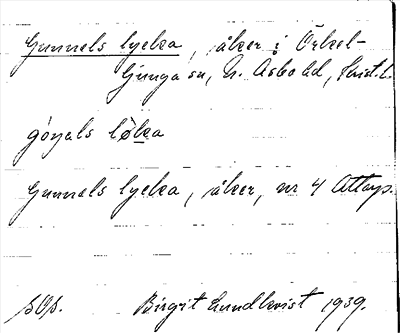 Gunnels lycka, åker i Örkel-
ljunga sn, N. Åsbo hd, Krist. l.
gònals lỳka
Gunnels lycka, åker, nr 4 Attarp.
sOs. Birgit Lundkvist 1939.